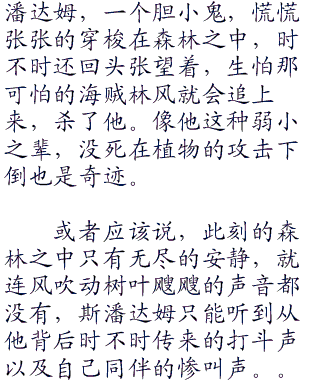 潘达姆，一个胆小鬼，慌慌
张张的穿梭在森林之中，时
不时还回头张望着，生怕那
可怕的海贼林风就会追上
来，杀了他。像他这种弱小
之辈，没死在植物的攻击下
倒也是奇迹。
或者应该说，此刻的森
林之中只有无尽的安静，就
连风吹动树叶飕飕的声音都
没有，斯潘达姆只能听到从
他背后时不时传来的打斗声
以及自己同伴的惨叫声。。